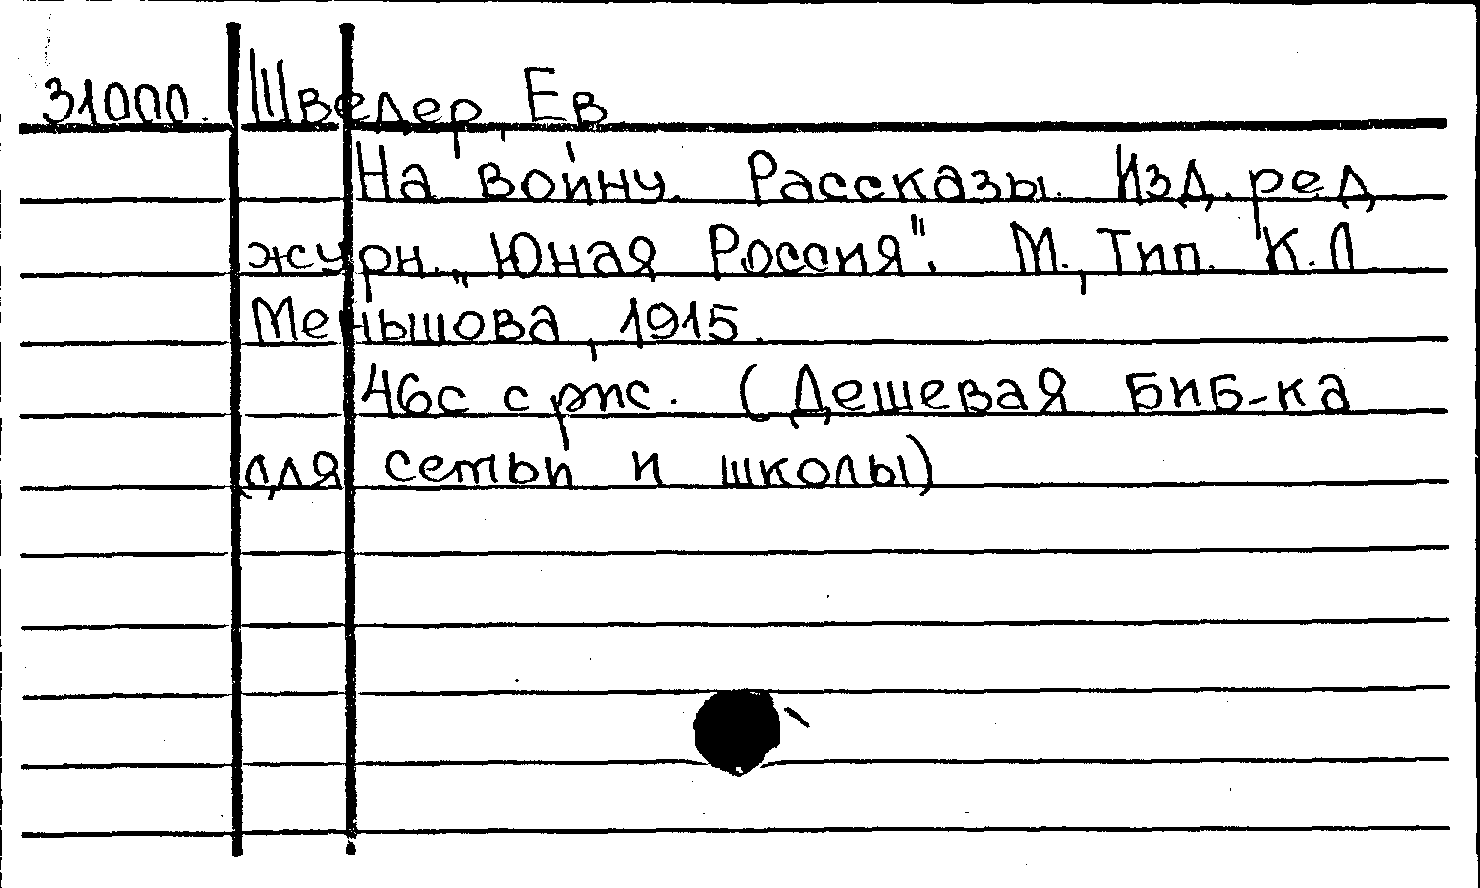 31000. Шведер, Ев.
На войну. Рассказы. Изд. ред
журн. „Юная Россия". М., Тип. К.Л
Меньшова, 1915.
46с с рис. (Дешевая биб-ка
для семьи и школы)